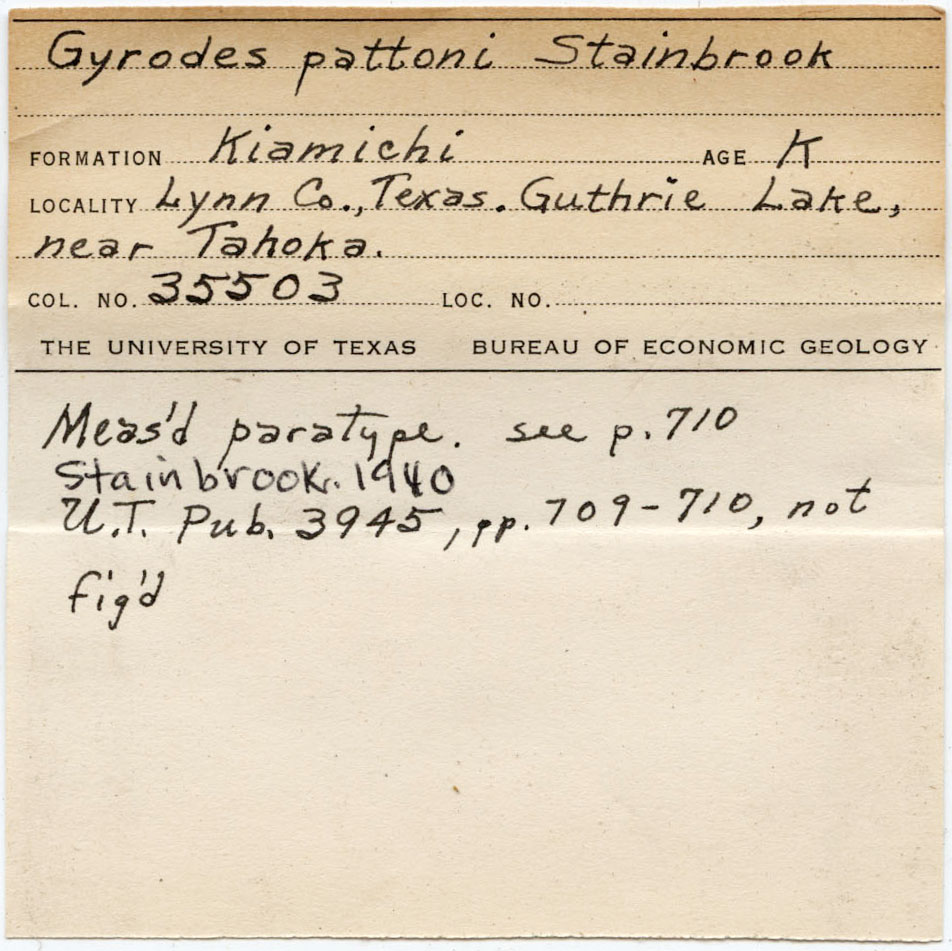 Gyrodes pattoni Stainbrook
FORMATION Kiamichi AGE K
LOCALITY Lynn Co., Texas. Guthrie Lake,
near Tahoka.
COL. NO. 35503 LOC. NO.
THE UNIVERSITY OF TEXAS BUREAU OF ECONOMIC GEOLOGY
Meas'd paratype. see p. 710
Stainbrook. 1940
U.T. Pub. 3945, pp. 709-710, not
fig'd